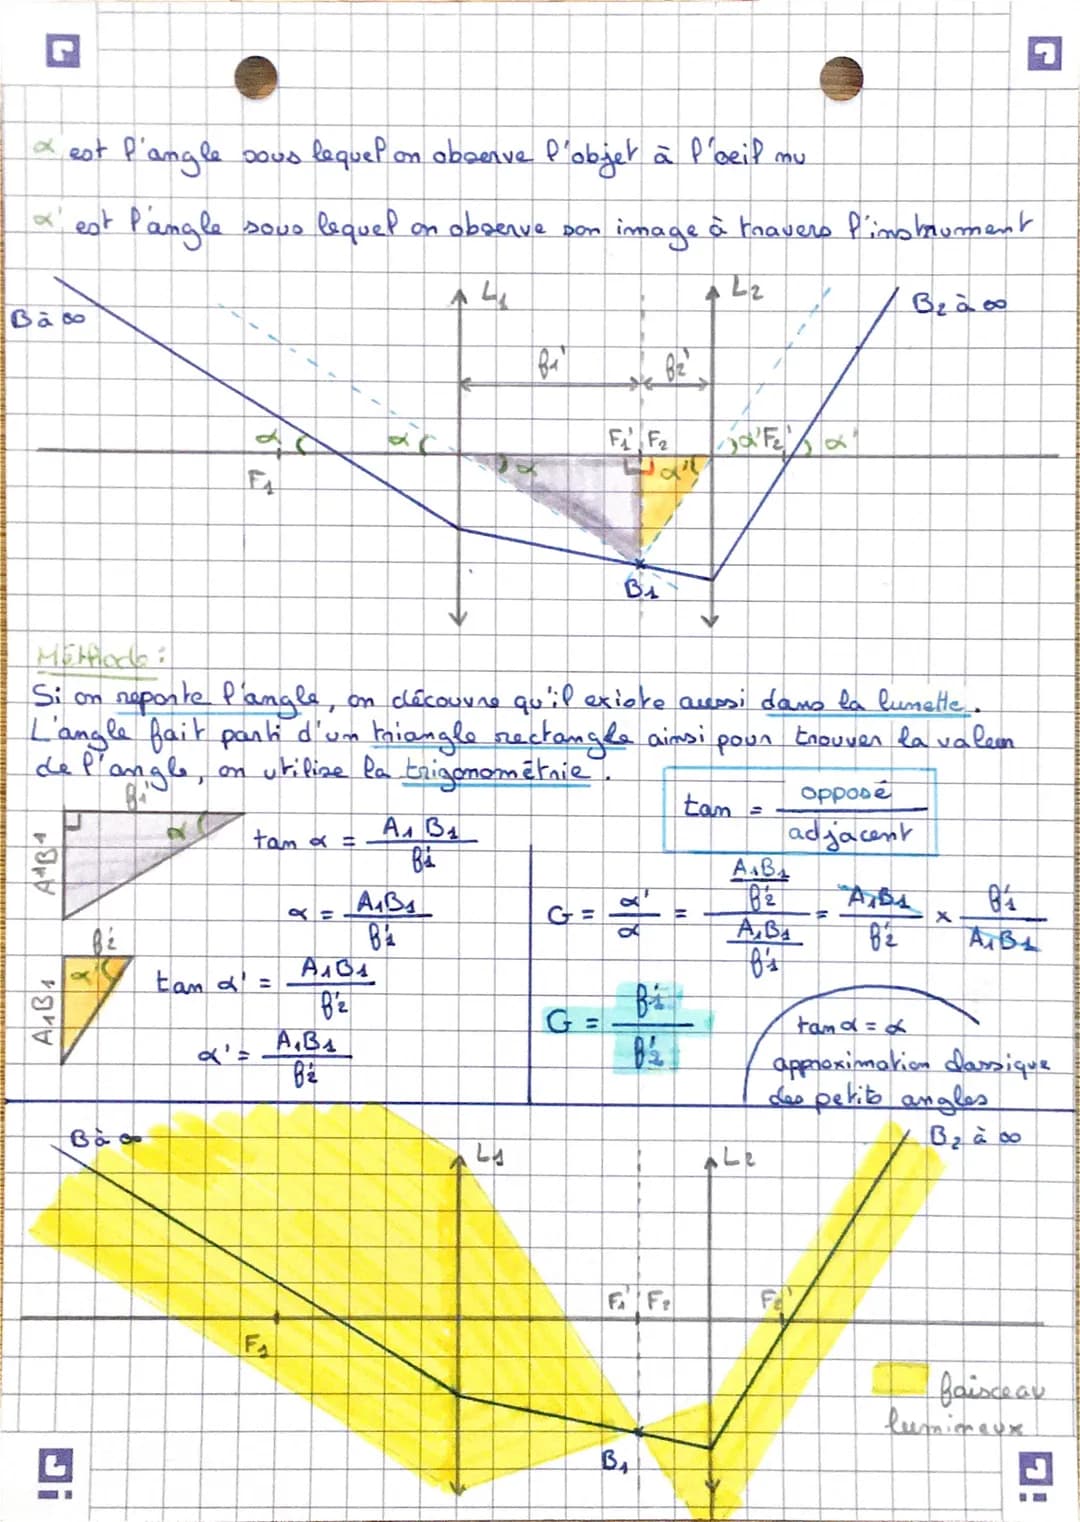 α est l'angle sous lequel on observe l'objet à l'oeil nu
α' est l'angle sous lequel on observe son image à travers l'instrument
B à ∞
L1
L2
B2 à ∞
f1'
f2'
α
α
F1'
F2
α'
F2'
α'
F1
α
α'
B1
Méthode :
Si on reporte l'angle, on découvre qu'il existe aussi dans la lunette.
L'angle fait parti d'un triangle rectangle ainsi pour trouver la valeur
de l'angle, on utilise la trigonométrie.
tan = opposé / adjacent
f1'
A1B1
α
tan α = A1B1 / f'1
α = A1B1 / f'1
f'2
A1B1
α'
tan α' = A1B1 / f'2
α' = A1B1 / f'2
G = α' / α = (A1B1 / f'2) / (A1B1 / f'1) = A1B1 / f'2 × f'1 / A1B1
G = f'1 / f'2
tan α = α
approximation classique
des petits angles
B à ∞
L1
L2
B2 à ∞
F1'
F2
F2'
F1
B1
faisceau
lumineux